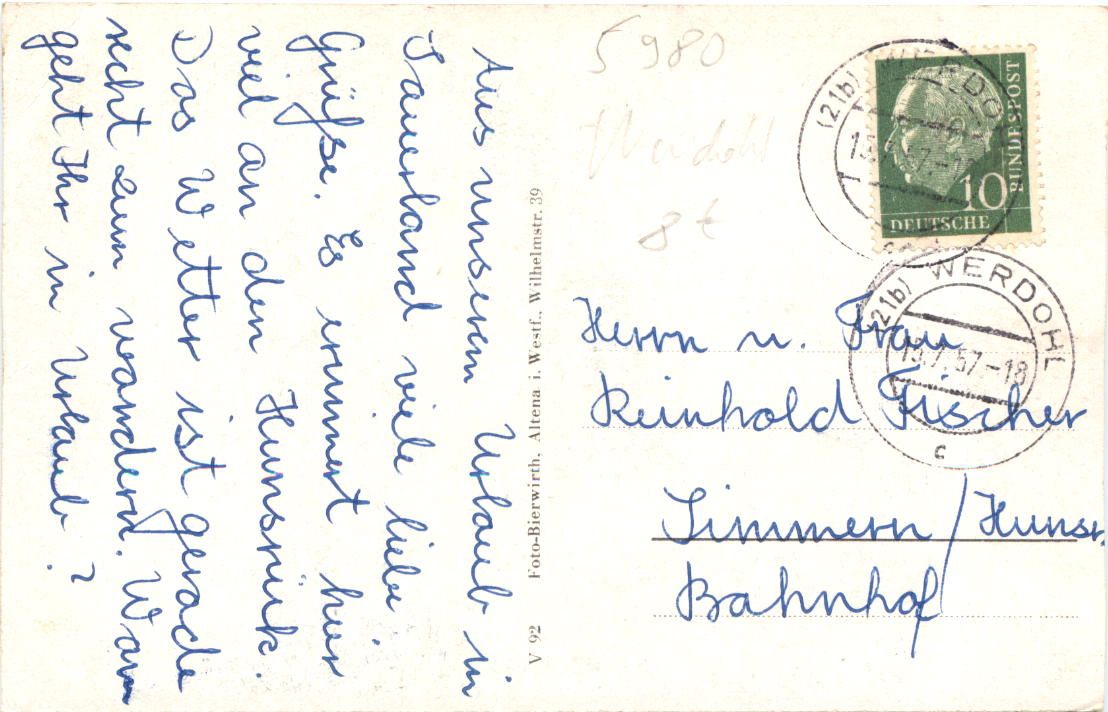 Aus unserem Urlaub in
Sauerland viele liebe
Grüße. Es erinnert hier
viel an den Hunsrück.
Das Wetter ist gerade
recht zum wandern. Wann
geht Ihr in Urlaub?
V 92 Foto-Bierwirth, Altena i. Westf., Wilhelmstr. 39
5980
Werdohl
8 t
(21b) WERDOHL
13.7.57.-18
BUNDESPOST
10
DEUTSCHE
(21b) WERDOHL
13.7.57.-18
c
Herrn u. Frau
Reinhold Fischer
Simmern/Hunsr.
Bahnhof